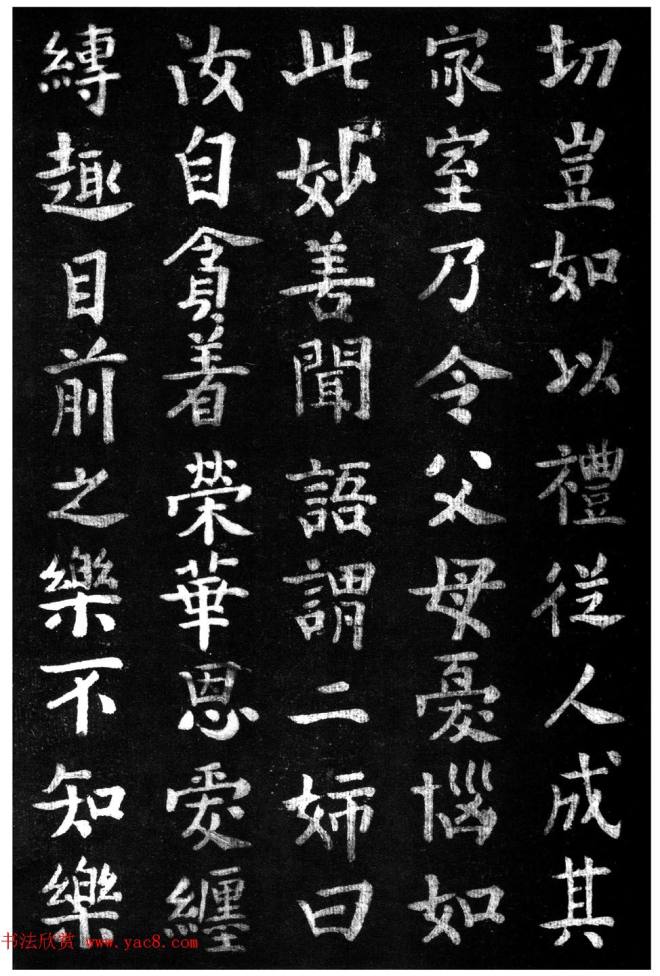 切豈如以禮從人成其
家室乃令父母憂惱如
此妙善聞語謂二姊曰
汝自貪着榮華恩愛纏
縛趣目前之樂不知樂
书法欣赏 www.yac8.com